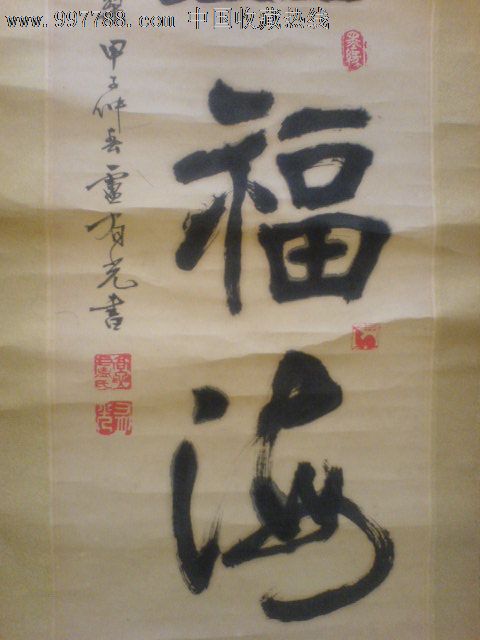 www.997788.com 中国收藏热线
福海
甲子仲春卢有光书